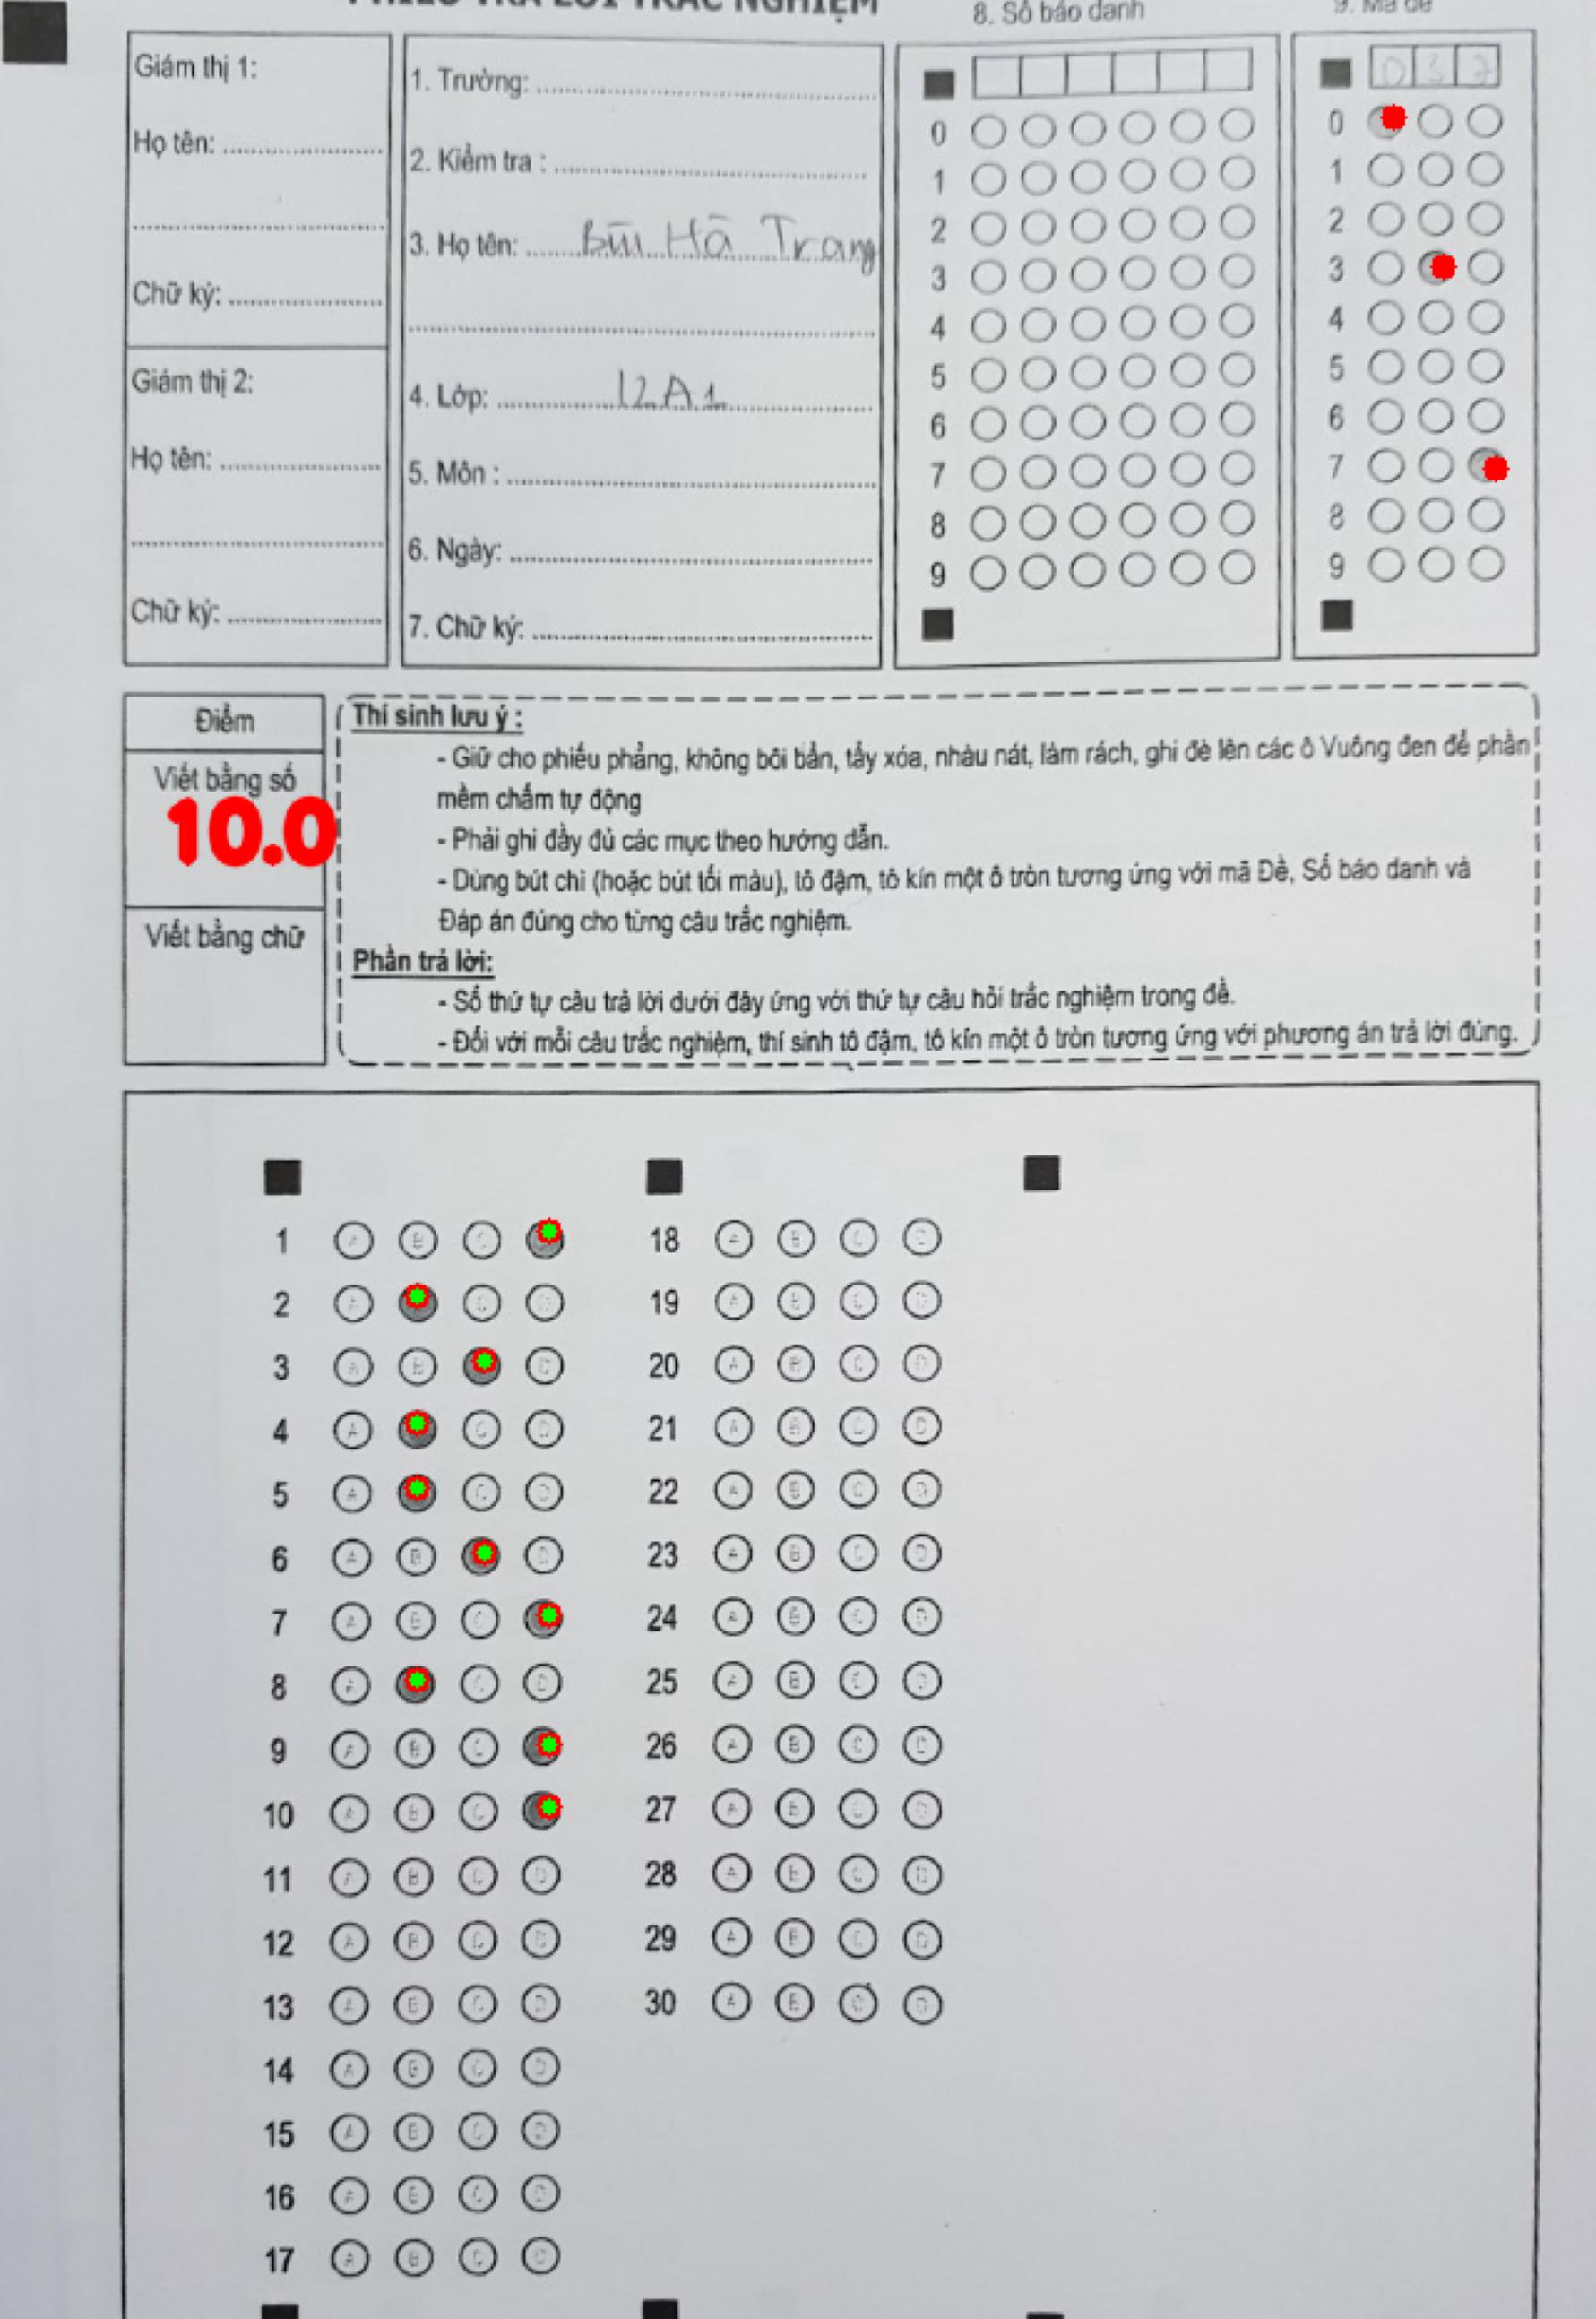 PHIẾU TRẢ LỜI TRẮC NGHIỆM
8. Số báo danh
9. Mã đề
Giám thị 1:
Họ tên:
Chữ ký:
Giám thị 2:
Họ tên:
Chữ ký:
1. Trường:
2. Kiểm tra :
3. Họ tên: Bùi Hà Trang
4. Lớp: 12A1
5. Môn :
6. Ngày:
7. Chữ ký:
0
1
2
3
4
5
6
7
8
9
0 3 7
0
1
2
3
4
5
6
7
8
9
Điểm
Viết bằng số
10.0
Viết bằng chữ
Thí sinh lưu ý :
- Giữ cho phiếu phẳng, không bôi bẩn, tẩy xóa, nhàu nát, làm rách, ghi đè lên các ô Vuông đen để phần
mềm chấm tự động
- Phải ghi đầy đủ các mục theo hướng dẫn.
- Dùng bút chì (hoặc bút tối màu), tô đậm, tô kín một ô tròn tương ứng với mã Đề, Số báo danh và
Đáp án đúng cho từng câu trắc nghiệm.
Phần trả lời:
- Số thứ tự câu trả lời dưới đây ứng với thứ tự câu hỏi trắc nghiệm trong đề.
- Đối với mỗi câu trắc nghiệm, thí sinh tô đậm, tô kín một ô tròn tương ứng với phương án trả lời đúng.
1 A B C
2 A C D
3 A B D
4 A C D
5 A C D
6 A B D
7 A B C
8 A C D
9 A B C
10 A B C
11 A B C D
12 A B C D
13 A B C D
14 A B C D
15 A B C D
16 A B C D
17 A B C D
18 A B C D
19 A B C D
20 A B C D
21 A B C D
22 A B C D
23 A B C D
24 A B C D
25 A B C D
26 A B C D
27 A B C D
28 A B C D
29 A B C D
30 A B C D